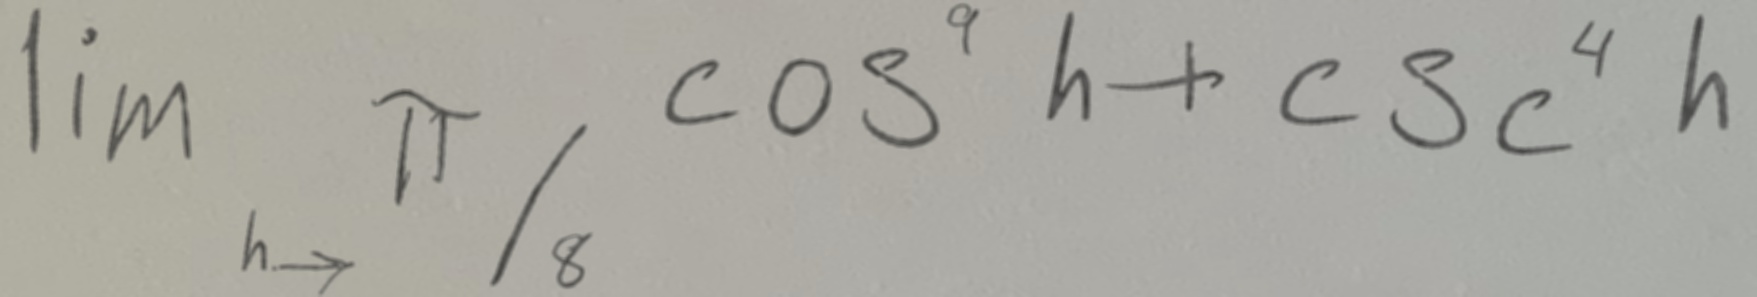 lim h→ π/8 cos⁹ h + csc⁴ h